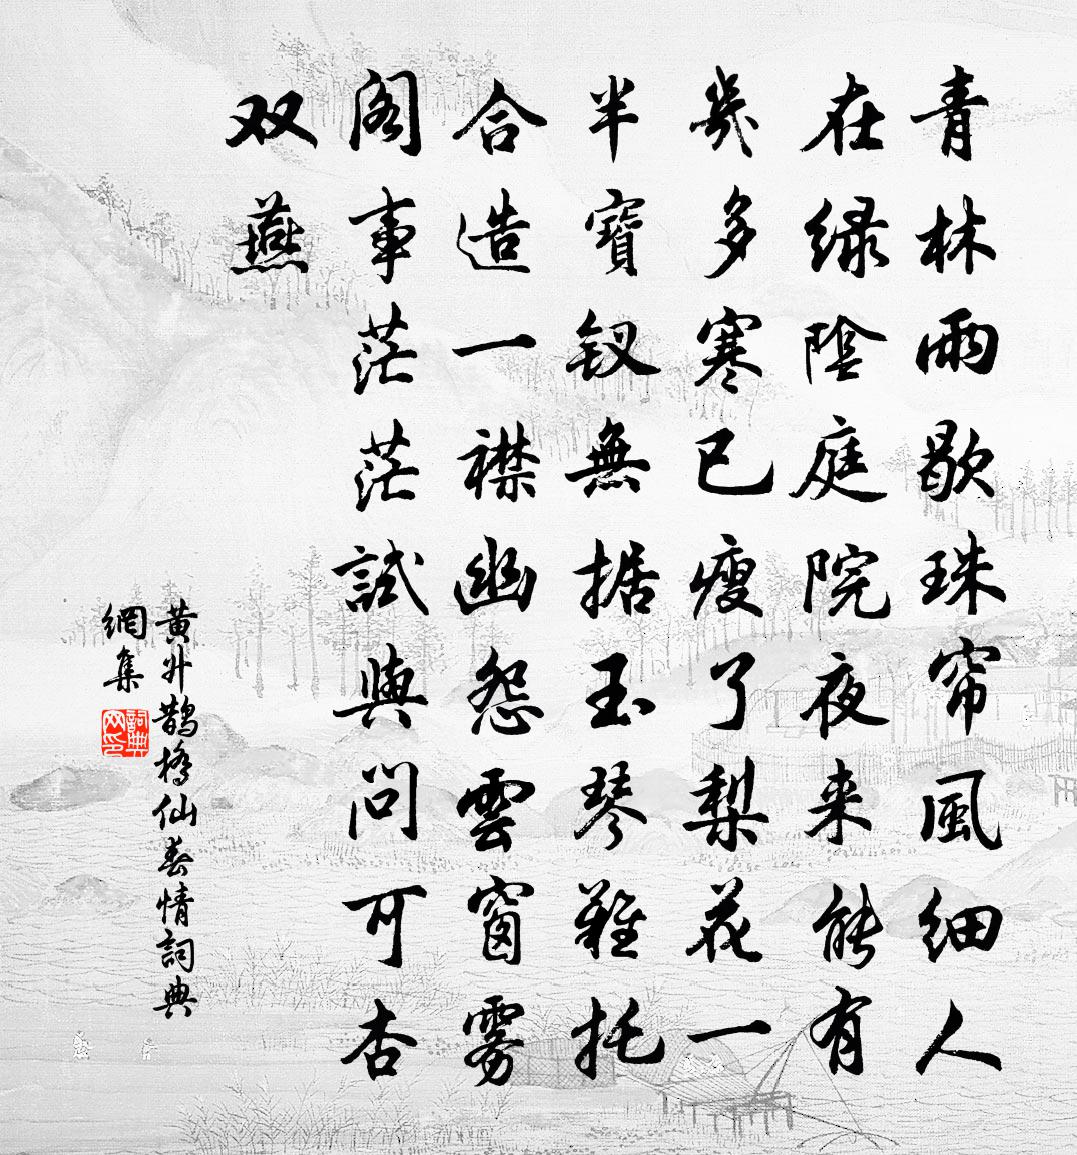 青林雨歇珠帘風細人
在绿陰庭院夜来能有
幾多寒已瘦了梨花一
半寶钗無据玉琴難托
合造一襟幽怨雲窗雾
阁事茫茫試與問可杏
双燕
黄升鹊橋仙春情詞典
網集
詞典
网印